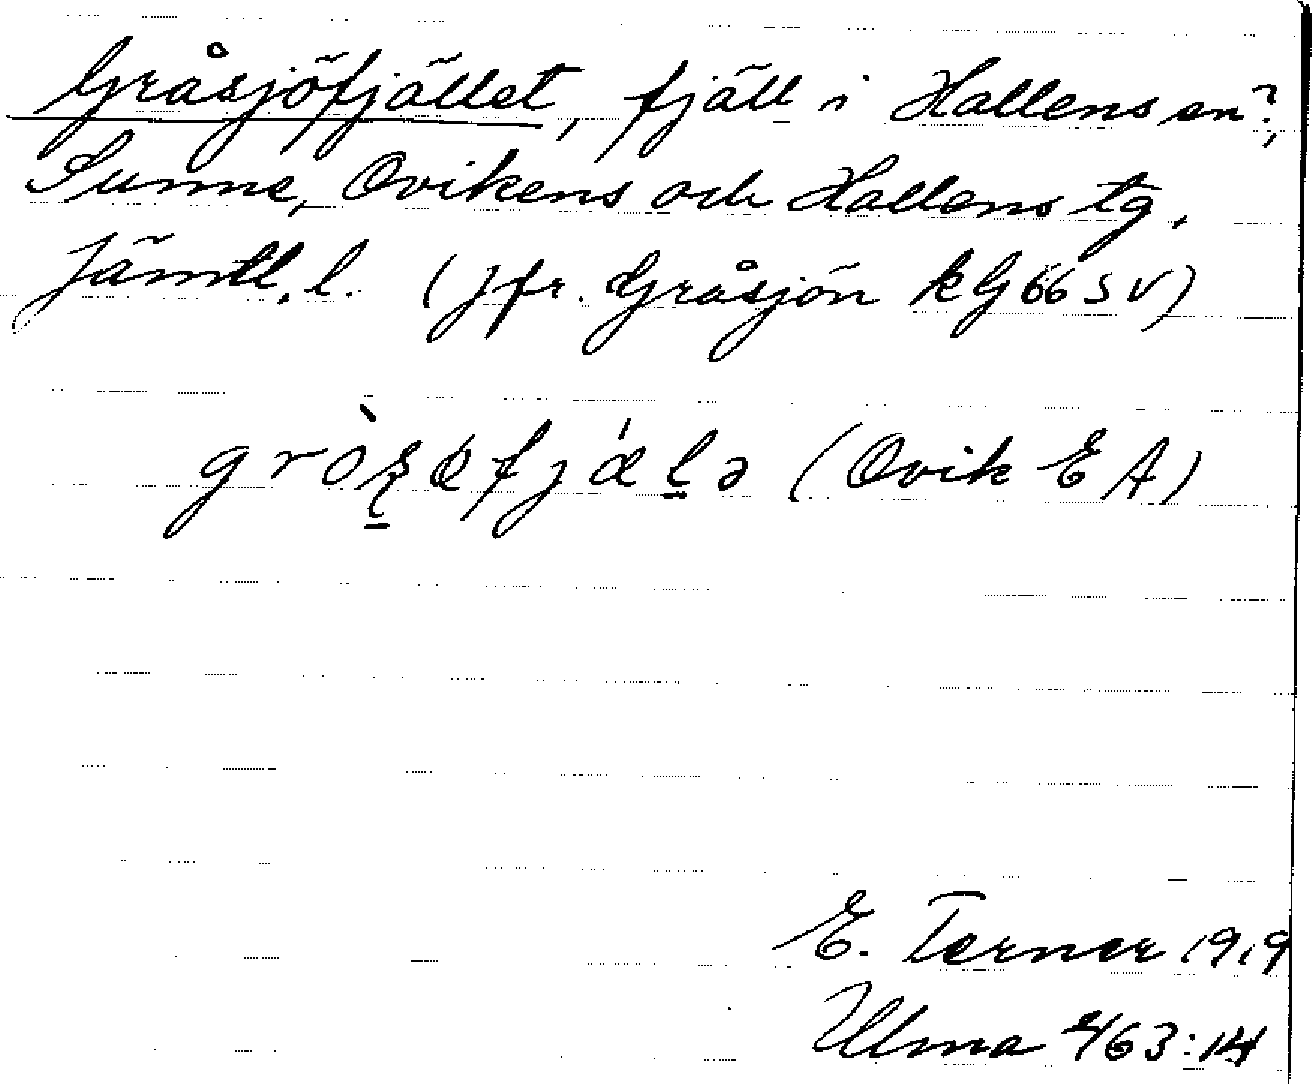 Gråsjöfjället, fjäll i Hallens sn?,
Sunne, Ovikens och Hallens tg,
Jämtl. l. (jfr. Gråsjön kG66SV)
(Ovik EA)
E. Terner 1919
Ulma 463:14